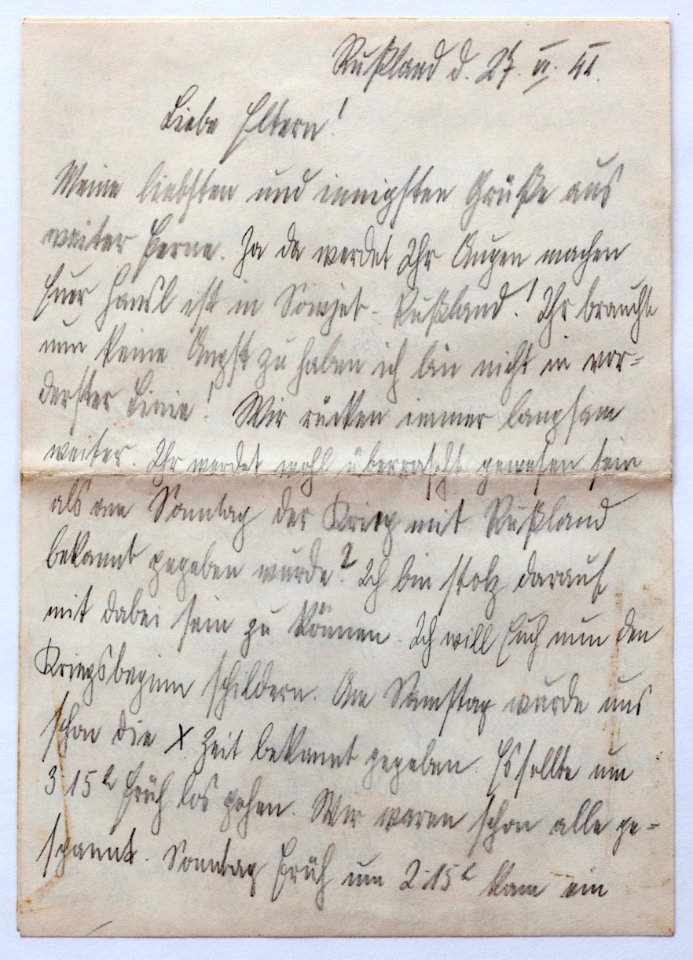 Rußland d. 27. VI. 41.
Liebe Eltern!
Meine liebsten und innigsten Grüße aus
weiter Ferne. Ja da werdet Ihr Augen machen
Euer Hansl ist in Sowjet-Rußland! Ihr braucht
nun keine Angst zu haben ich bin nicht in vor=
derster Linie! Wir rücken immer langsam
weiter. Ihr werdet wohl überrascht gewesen sein
als am Sonntag der Krieg mit Rußland
bekannt gegeben wurde? Ich bin stolz darauf
mit dabei sein zu können. Ich will Euch nun den
Kriegsbeginn schildern. Am Samstag wurde uns
schon die X Zeit bekannt gegeben. Es sollte um
3 15h früh los gehen. Wir waren schon alle ge=
spannt. Sonntag früh um 2.15h kam ein